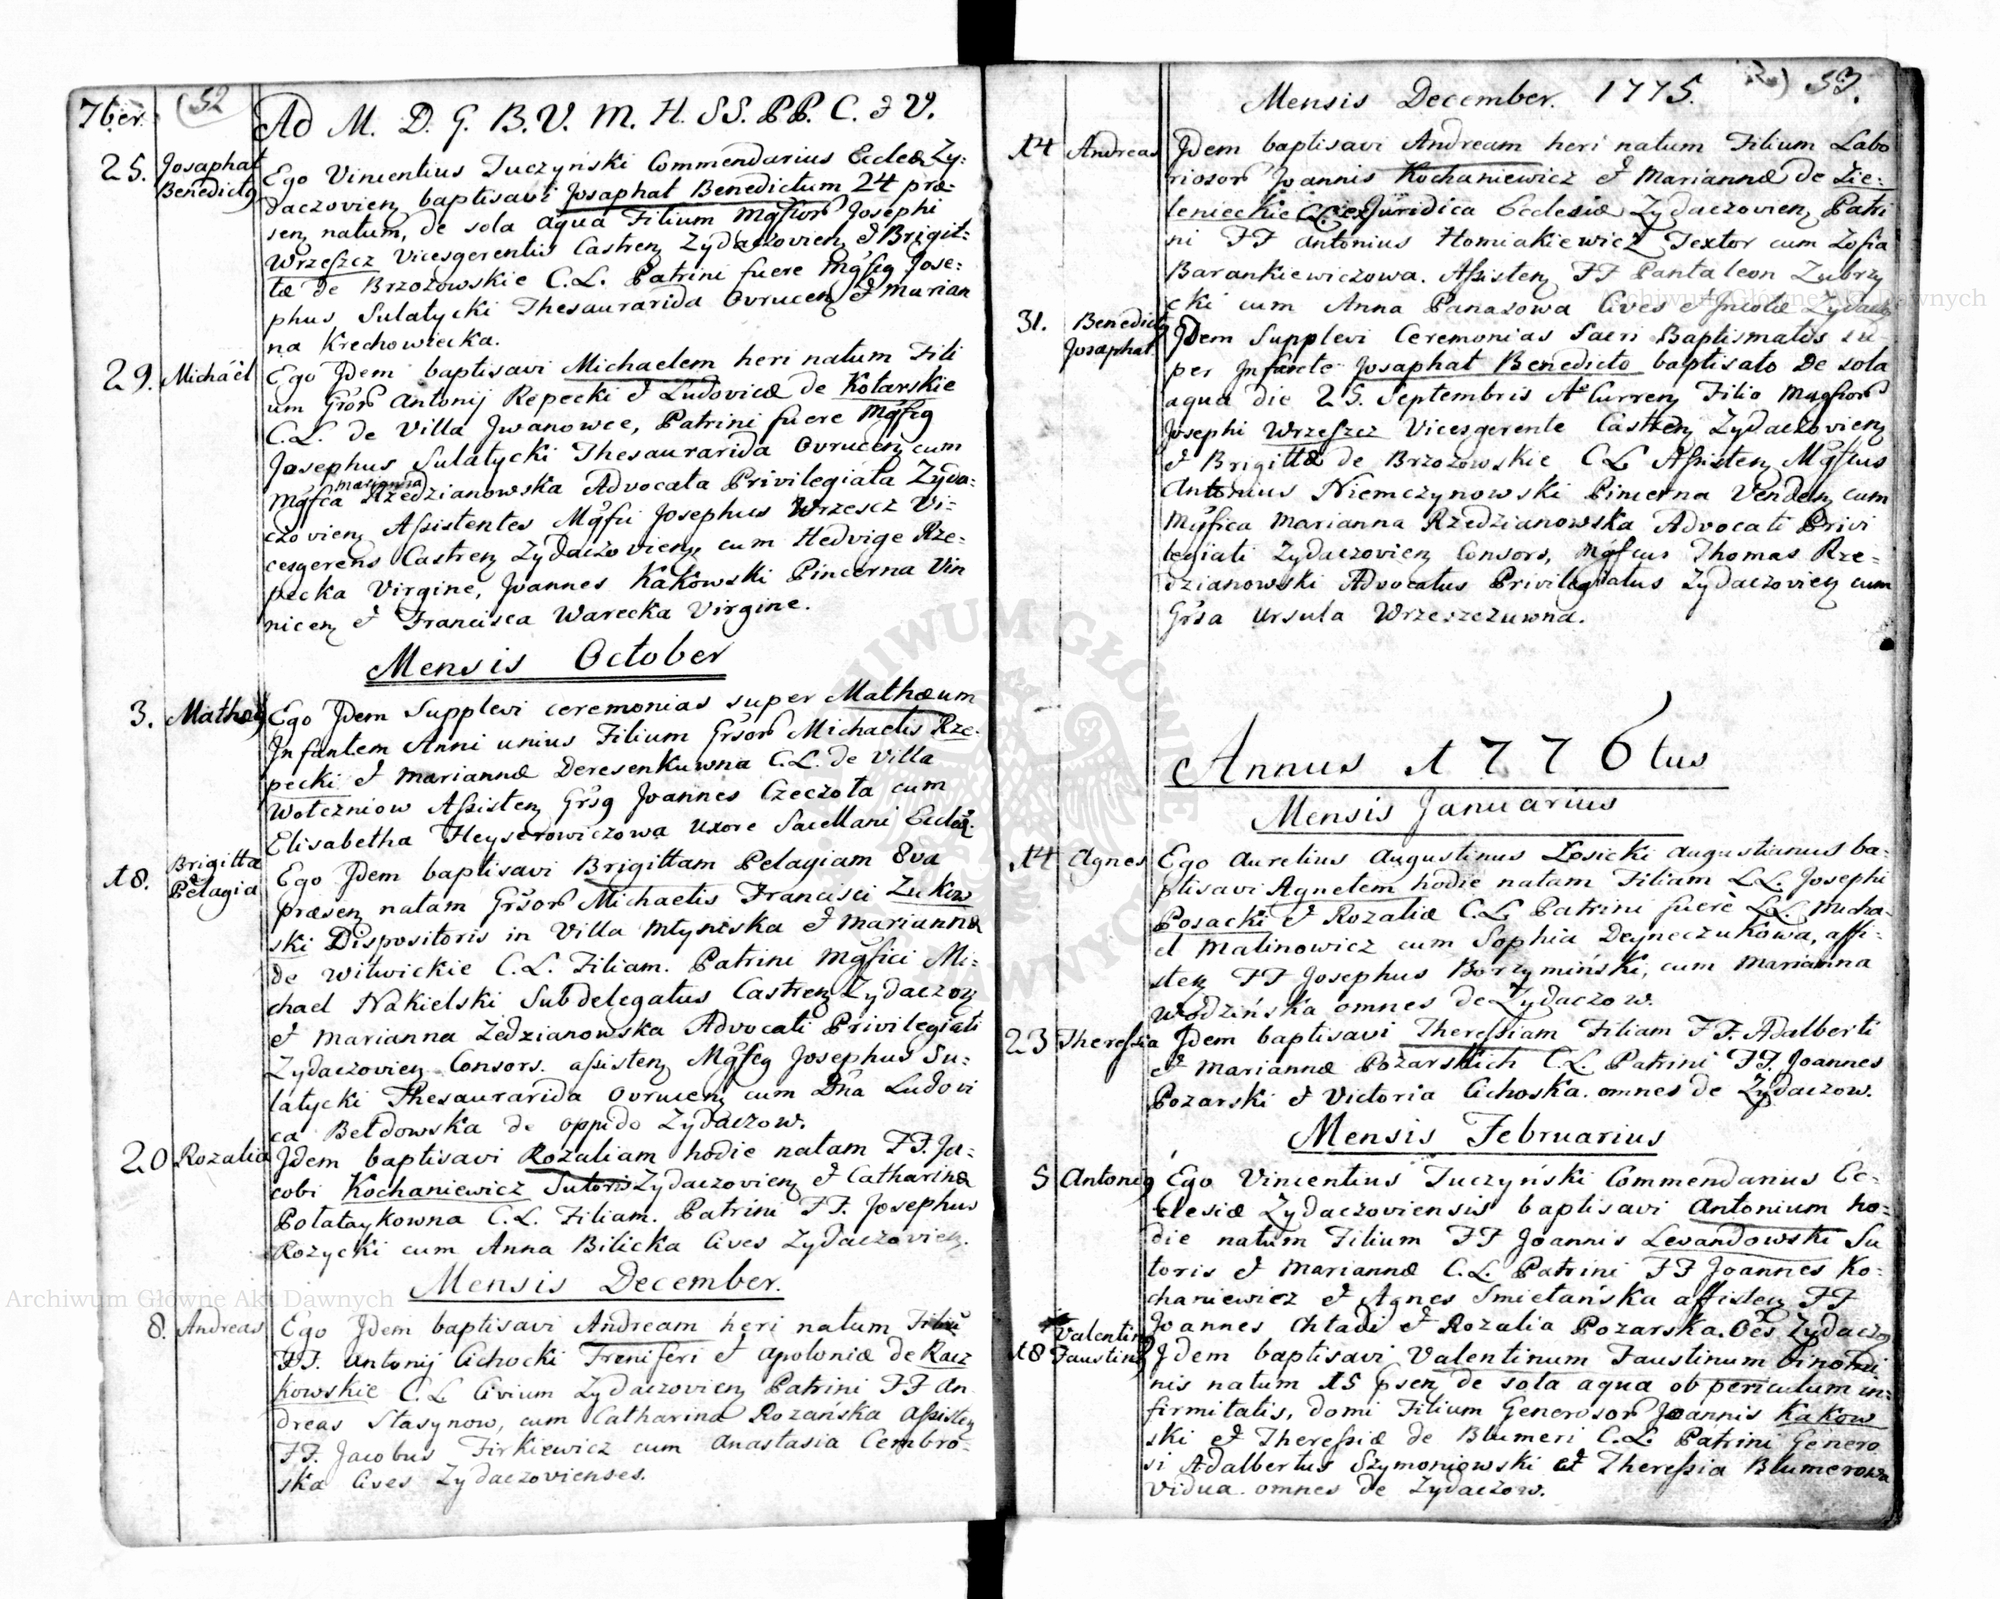 7ber. (52
Ad M. D. G. B. V. M. H. SS. PP. C. & V.
25. Josaphat Benedictq
Ego Vincentius Tuczyński Commendarius Eccleæ Zy:
daczovienz baptisavi Josaphat Benedictum 24 præ:
senz natum, de sola aqua Filium Mgficor Josephi
Wrzeszcz Vicesgerentis Castrenz Zydaczovienz & Brigit:
tæ de Brzozowskie C.L. Patrini fuere Mgficq Jose:
phus Sulatycki Thesaurarida Ovrucenz & Marian
na Krechowiecka.
29. Michäel
Ego Jdem baptisavi Michaelem heri natum Fili
um Gror Antonij Repecki & Ludovicæ de Kotarskie
C.L. de Villa Jwanowce, Patrini fuere Mgficq
Josephus Sulatycki Thesaurarida Ovrucenz cum
Mgfca Marianna Rzedzianowska Advocata Privilegiata Zyda:
czovienz Assistentes Mgfici Josephus Wrzescz Vi:
cesgerens Castrenz Zydaczovienz, cum Hedvige Rze:
pecka Virgine, Joannes Kakowski Pincerna Vin
nicenz & Francisca Warecka Virgine.
Mensis October
3. Mathæq
Ego Jdem Supplevi ceremonias super Mathæum
Jnfantem Anni unius Filium Grsor Michaelis Rze:
pecki & Mariannæ Deresenkuwna C.L. de Villa
Wotczniow Assistenz Grsq Joannes Czeczota cum
Elisabetha Heyserowiczowa Uxore Sacellani Eccleæ.
18. Brigitta Pelagia
Ego Jdem baptisavi Brigittam Pelagiam 8va
præsenz natam Grsor Michaelis Francisci Zukow
ski Dispositoris in Villa Młyniska & Mariannæ
de Witwickie C.L. Filiam. Patrini Mgfici Mi:
chael Nakielski Subdelegatus Castrenz Zydaczovz
& Marianna Zedzianowska Advocati Privilegiati
Zydaczovienz Consors. assistenz Mgficq Josephus Su:
latycki Thesaurarida Ovrucenz cum Dña Ludovi
ca Bełdowska de oppido Zydaczow.
20 Rozalia
Jdem baptisavi Rozaliam hodie natam FF. Ja:
cobi Kochaniewicz Sutoris Zydaczovienz & Catharinæ
Potataykowna C.L. Filiam. Patrini FF. Josephus
Rozycki cum Anna Bilicka Cives Zydaczovienz.
Mensis December.
8. Andreas
Ego Jdem baptisavi Andream heri natum Filiũ
FF. Antonij Cichocki Freniferi & Apoloniæ de Racz
kowskie C.L. Civium Zydaczovienz Patrini FF An
dreas Stasynow, cum Catharina Rozańska Assistenz
FF. Jacobus Firkiewicz cum Anastasia Cembro:
ska Cives Zydaczovienses.
Mensis December. 1775. 53.
14 Andreas
Jdem baptisavi Andream heri natum Filium Labo
riosor Joannis Kochaniewicz & Mariannæ de Zie:
lenieckie C.L. ex Juridica Ecclesiæ Zydaczovienz Patri
ni FF Antonius Homiakiewicz Textor cum Zofia
Barankiewiczowa. Assistenz FF Pantaleon Zubrzy
cki cum Anna Panasowa Cives & Incolæ Zydacz
31. Benedictq Josaphat
Jdem Supplevi Ceremonias Sacri Baptismatis su
per Jnfante Josaphat Benedicto baptisato de sola
aqua die 25. Septembris A Currenz Filio Mgficor
Josephi Wrzeszcz Vicesgerente Castrenz Zydaczovienz
& Brigittæ de Brzozowskie C.L. Assistenz Mgficus
Antonius Niemczynowski Pincerna Vendenz cum
Mgfica Marianna Rzedzianowska Advocati Privi
legiati Zydaczovienz Consors, Mgfcus Thomas Rze:
dzianowski Advocatus Privilegiatus Zydaczovienz cum
Grsa Ursula Wrzeszczuwna.
Annus 1776tus
Mensis Januarius
14 Agnes
Ego Aurelius Augustinus Lesicki Augustianus ba:
ptisavi Agnetem hodie natam Filiam LL. Josephi
Posacki & Rozaliæ C.L. Patrini fuere LL. Micha:
el Malinowicz cum Sophia Deyneczukowa, assi:
stenz FF Josephus Borzymiński, cum Marianna
Wodzińska omnes de Zydaczow.
23 Theressia
Jdem baptisavi Theressiam Filiam FF. Adalberti
& Mariannæ Pożarskich C.L. Patrini FF. Joannes
Pozarski & Victoria Cichoska. omnes de Zydaczow.
Mensis Februarius
5 Antoniq
Ego Vincentius Tuczyński Commendarius Ec:
clesiæ Zydaczoviensis baptisavi Antonium ho:
die natum Filium FF Joannis Levandowski Su
toris & Mariannæ C.L. Patrini FF Joannes Ko:
chaniewicz & Agnes Smietańska assistenz FF
Joannes Chładi & Rozalia Pozarska. Oẽs Zydaczov
18 Valentinq Faustinq
Jdem baptisavi Valentinum Faustinum binomi
nis natum 15 psenz de sola aqua ob periculum in:
firmitatis, domi Filium Generosor Joannis Kakow
ski & Theressiæ de Blumeri C.L. Patrini Genero
si Adalbertus Szymoniowski et Theressia Blumerowa
Vidua. omnes de Zydaczow.
Archiwum Główne Akt Dawnych
Archiwum Główne Akt Dawnych
ARCHIWUM GŁÓWNE AKT DAWNYCH